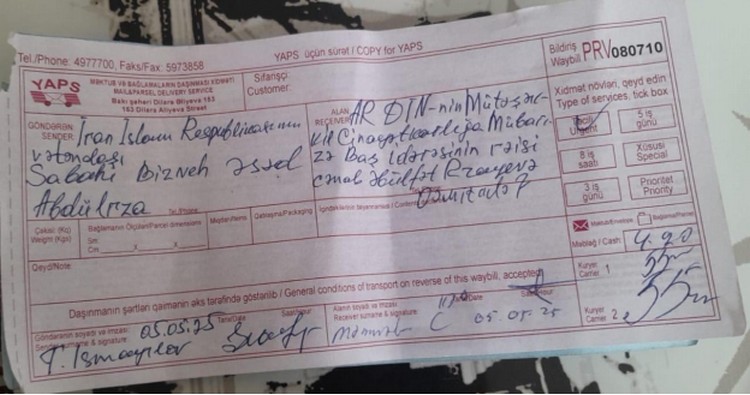 Tel./Phone: 4977700, Faks/Fax: 5973858
YAPS üçün surət / COPY for YAPS
Bildiriş
Waybill PRV080710
YAPS
MƏKTUB VƏ BAĞLAMALARIN DAŞINMASI XİDMƏTİ
MAIL&PARSEL DELIVERY SERVICE
Bakı şəhəri Dilarə Əliyeva 153
153 Dilara Aliyeva Street
Sifarişçi:
Customer:
GÖNDƏRƏN
SENDER:
İran İslam Respublikasının
vətəndaşı
Sabahi Bizneh Əsəl
Abdülrza
Tel./Phone
ALAN
RECEIVER:
AR DİN-nin Mütəşək-
kil Cinayətkarlığa Mübari-
zə Baş İdarəsinin rəisi
cənab Əbülfət Rzayevə
Xidmət növləri, qeyd edin
Type of services, tick box
Təcili
Urgent
5 iş
günü
8 iş
saatı
Xüsusi
Special
3 iş
günü
Prioritet
Priority
Çəkisi (Kq)
Weight (Kgs)
Bağlamanın Ölçüləri/Parcel dimensions
Sm.
Cm. x x
Miqdarı/Items
Qablaşma/Packaging
Məktub/Envelope
Bağlama/Parcel
Məbləğ / Cash 4.90
Qeyd/Note
Kuryer
Carrier 1
Daşınmanın şərtləri qaimənin əks tərəfində göstərilib / General conditions of transport on reverse of this waybill, accepted
Göndərənin soyadı və imzası
Sender surname & signature
05.05.25
Tarix/Date
Saat/Hour
T. İsmayılov
Alanın soyadı və imzası:
Receiver surname & signature:
Tarix/Date
Saat/Hour
Məmməd C 05.05.25
Kuryer
Carrier 2